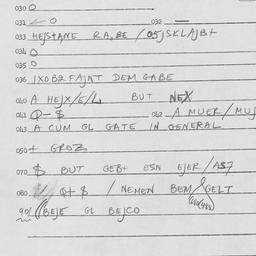 030 O
031 O 032 —
033 HEJSTANE RA,BE / OSJSKLAJB+
034 O
035 O
036 IXOB2 FAJNT DEM GABE
040 A HEJX/E/L BUT NEX
041 Q-$ 042 A MUER/MUJ
043 A CUM GL GATE IN GENERAL
050+ GROZ
070 $ BUT GEB+ ESN EJER/AS7
080 Q+$ / NEMEN BEM GELT
90 BEJE GL BEJCO